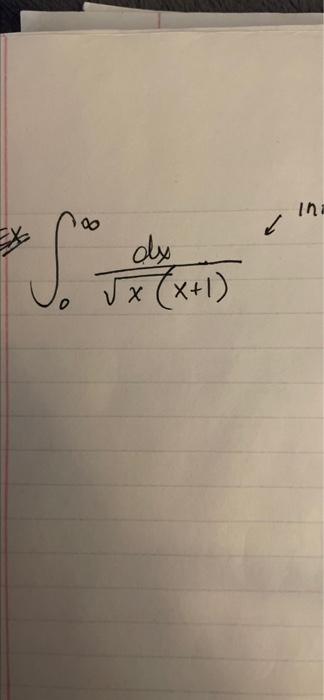 Ex ∫₀^∞ dx / √x (x+1)